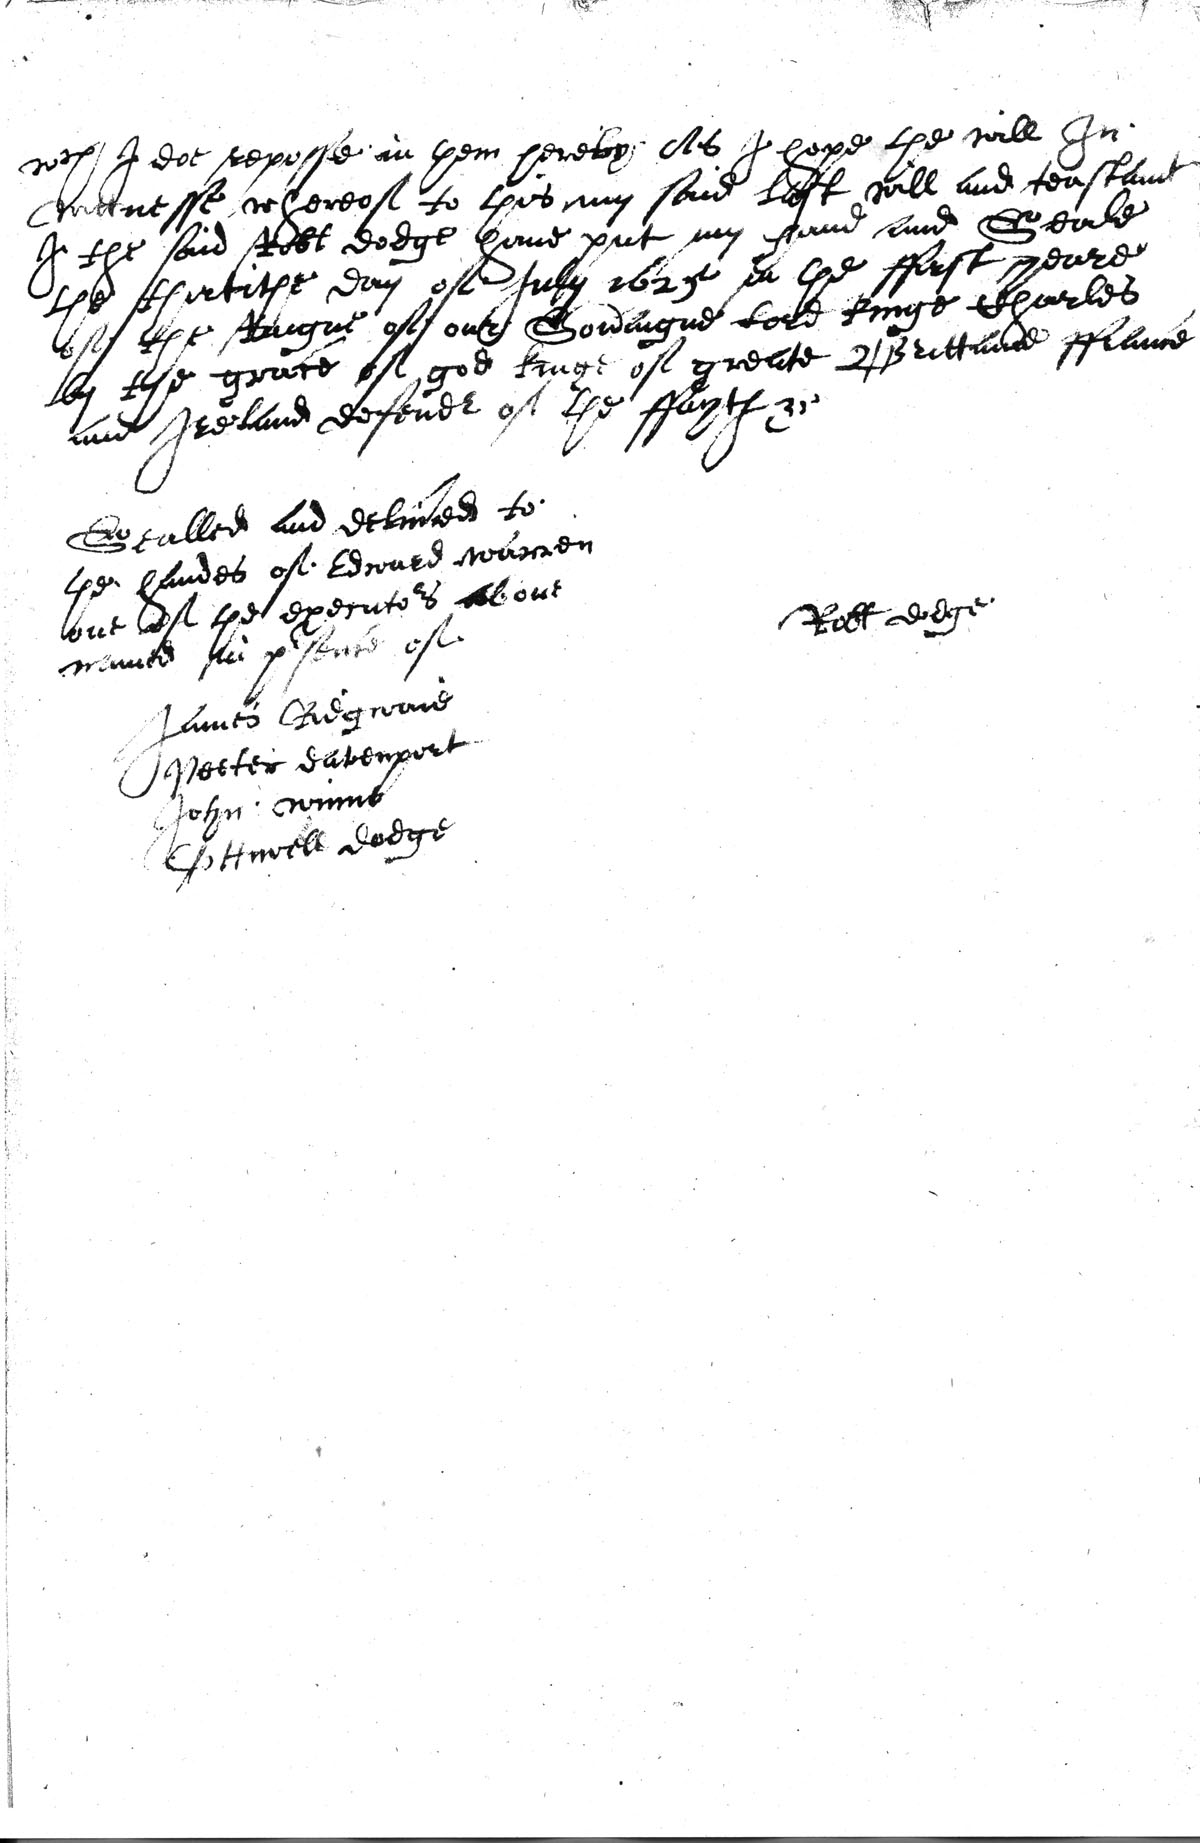 wch I doe reposse in them hereby As I hope the will In
wittnesse whereof to this my said last will and teastamt
I the said Robt dodge have put my hand and Seale
the thirtithe day of July 1625 in the ffirst yeare
of the Raigne of our Sovaigne lord Kinge Charles
by the grace of god Kinge of greate Brittaine ffrance
and Ireland defendr of the ffayth &c
Sealled and delivered to
the handes of Edward warren
one of the executors above
named in psence of
Robt dodge
James Ridgwaie
Peeter davenport
John winne
Ottiwell dodge